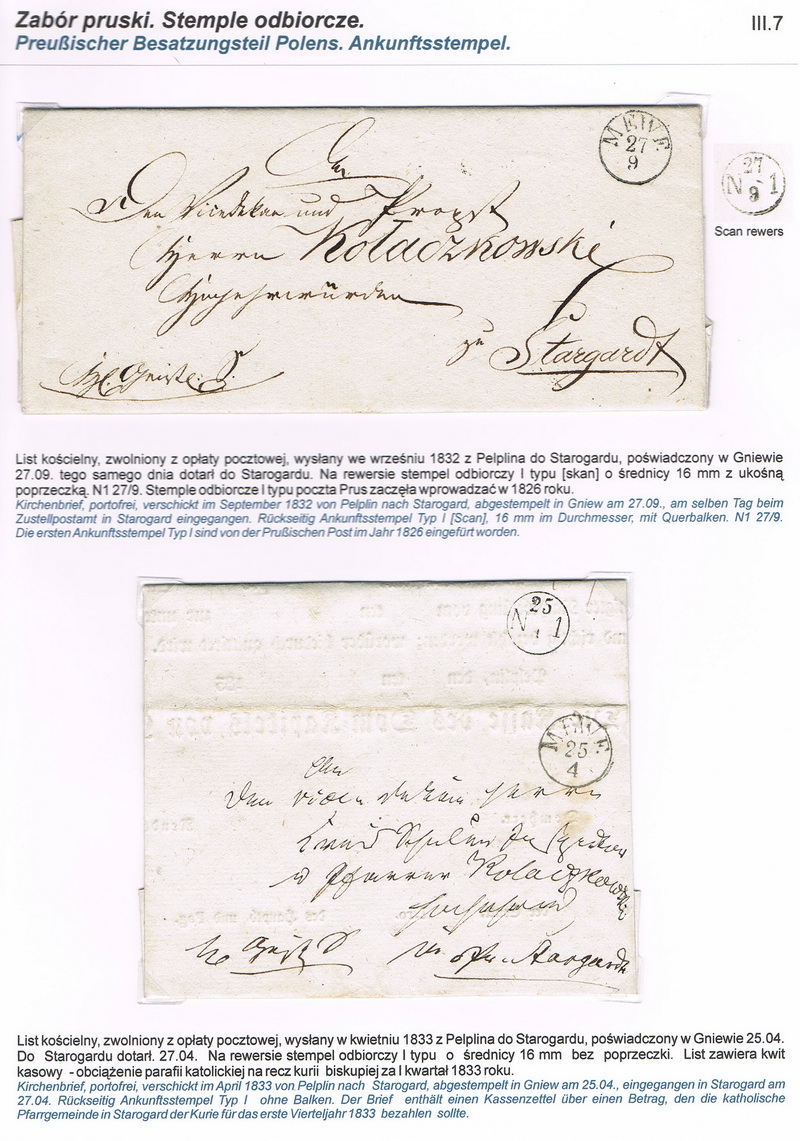 Zabór pruski. Stemple odbiorcze.
III.7
Preußischer Besatzungsteil Polens. Ankunftsstempel.
MEWE
27
9
27
N 1
9
Scan rewers
An
Den Vicedekan und Propst
Herrn Kołaczkowski
Hochehrwürden
zu Stargardt
List kościelny, zwolniony z opłaty pocztowej, wysłany we wrześniu 1832 z Pelplina do Starogardu, poświadczony w Gniewie
27.09. tego samego dnia dotarł do Starogardu. Na rewersie stempel odbiorczy I typu [skan] o średnicy 16 mm z ukośną
poprzeczką. N1 27/9. Stemple odbiorcze I typu poczta Prus zaczęła wprowadzać w 1826 roku.
Kirchenbrief, portofrei, verschickt im September 1832 von Pelplin nach Starogard, abgestempelt in Gniew am 27.09., am selben Tag beim
Zustellpostamt in Starogard eingegangen. Rückseitig Ankunftsstempel Typ I [Scan], 16 mm im Durchmesser, mit Querbalken. N1 27/9.
Die ersten Ankunftsstempel Typ I sind von der Prußischen Post im Jahr 1826 eingefürt worden.
25
N 1
MEWE
25
4
An
Herrn
Pfarrer Kolaczkowski
Stargardt
List kościelny, zwolniony z opłaty pocztowej, wysłany w kwietniu 1833 z Pelplina do Starogardu, poświadczony w Gniewie 25.04.
Do Starogardu dotarł. 27.04. Na rewersie stempel odbiorczy I typu o średnicy 16 mm bez poprzeczki. List zawiera kwit
kasowy - obciążenie parafii katolickiej na recz kurii biskupiej za I kwartał 1833 roku.
Kirchenbrief, portofrei, verschickt im April 1833 von Pelplin nach Starogard, abgestempelt in Gniew am 25.04., eingegangen in Starogard am
27.04. Rückseitig Ankunftsstempel Typ I ohne Balken. Der Brief enthält einen Kassenzettel über einen Betrag, den die katholische
Pfarrgemeinde in Starogard der Kurie für das erste Vierteljahr 1833 bezahlen sollte.